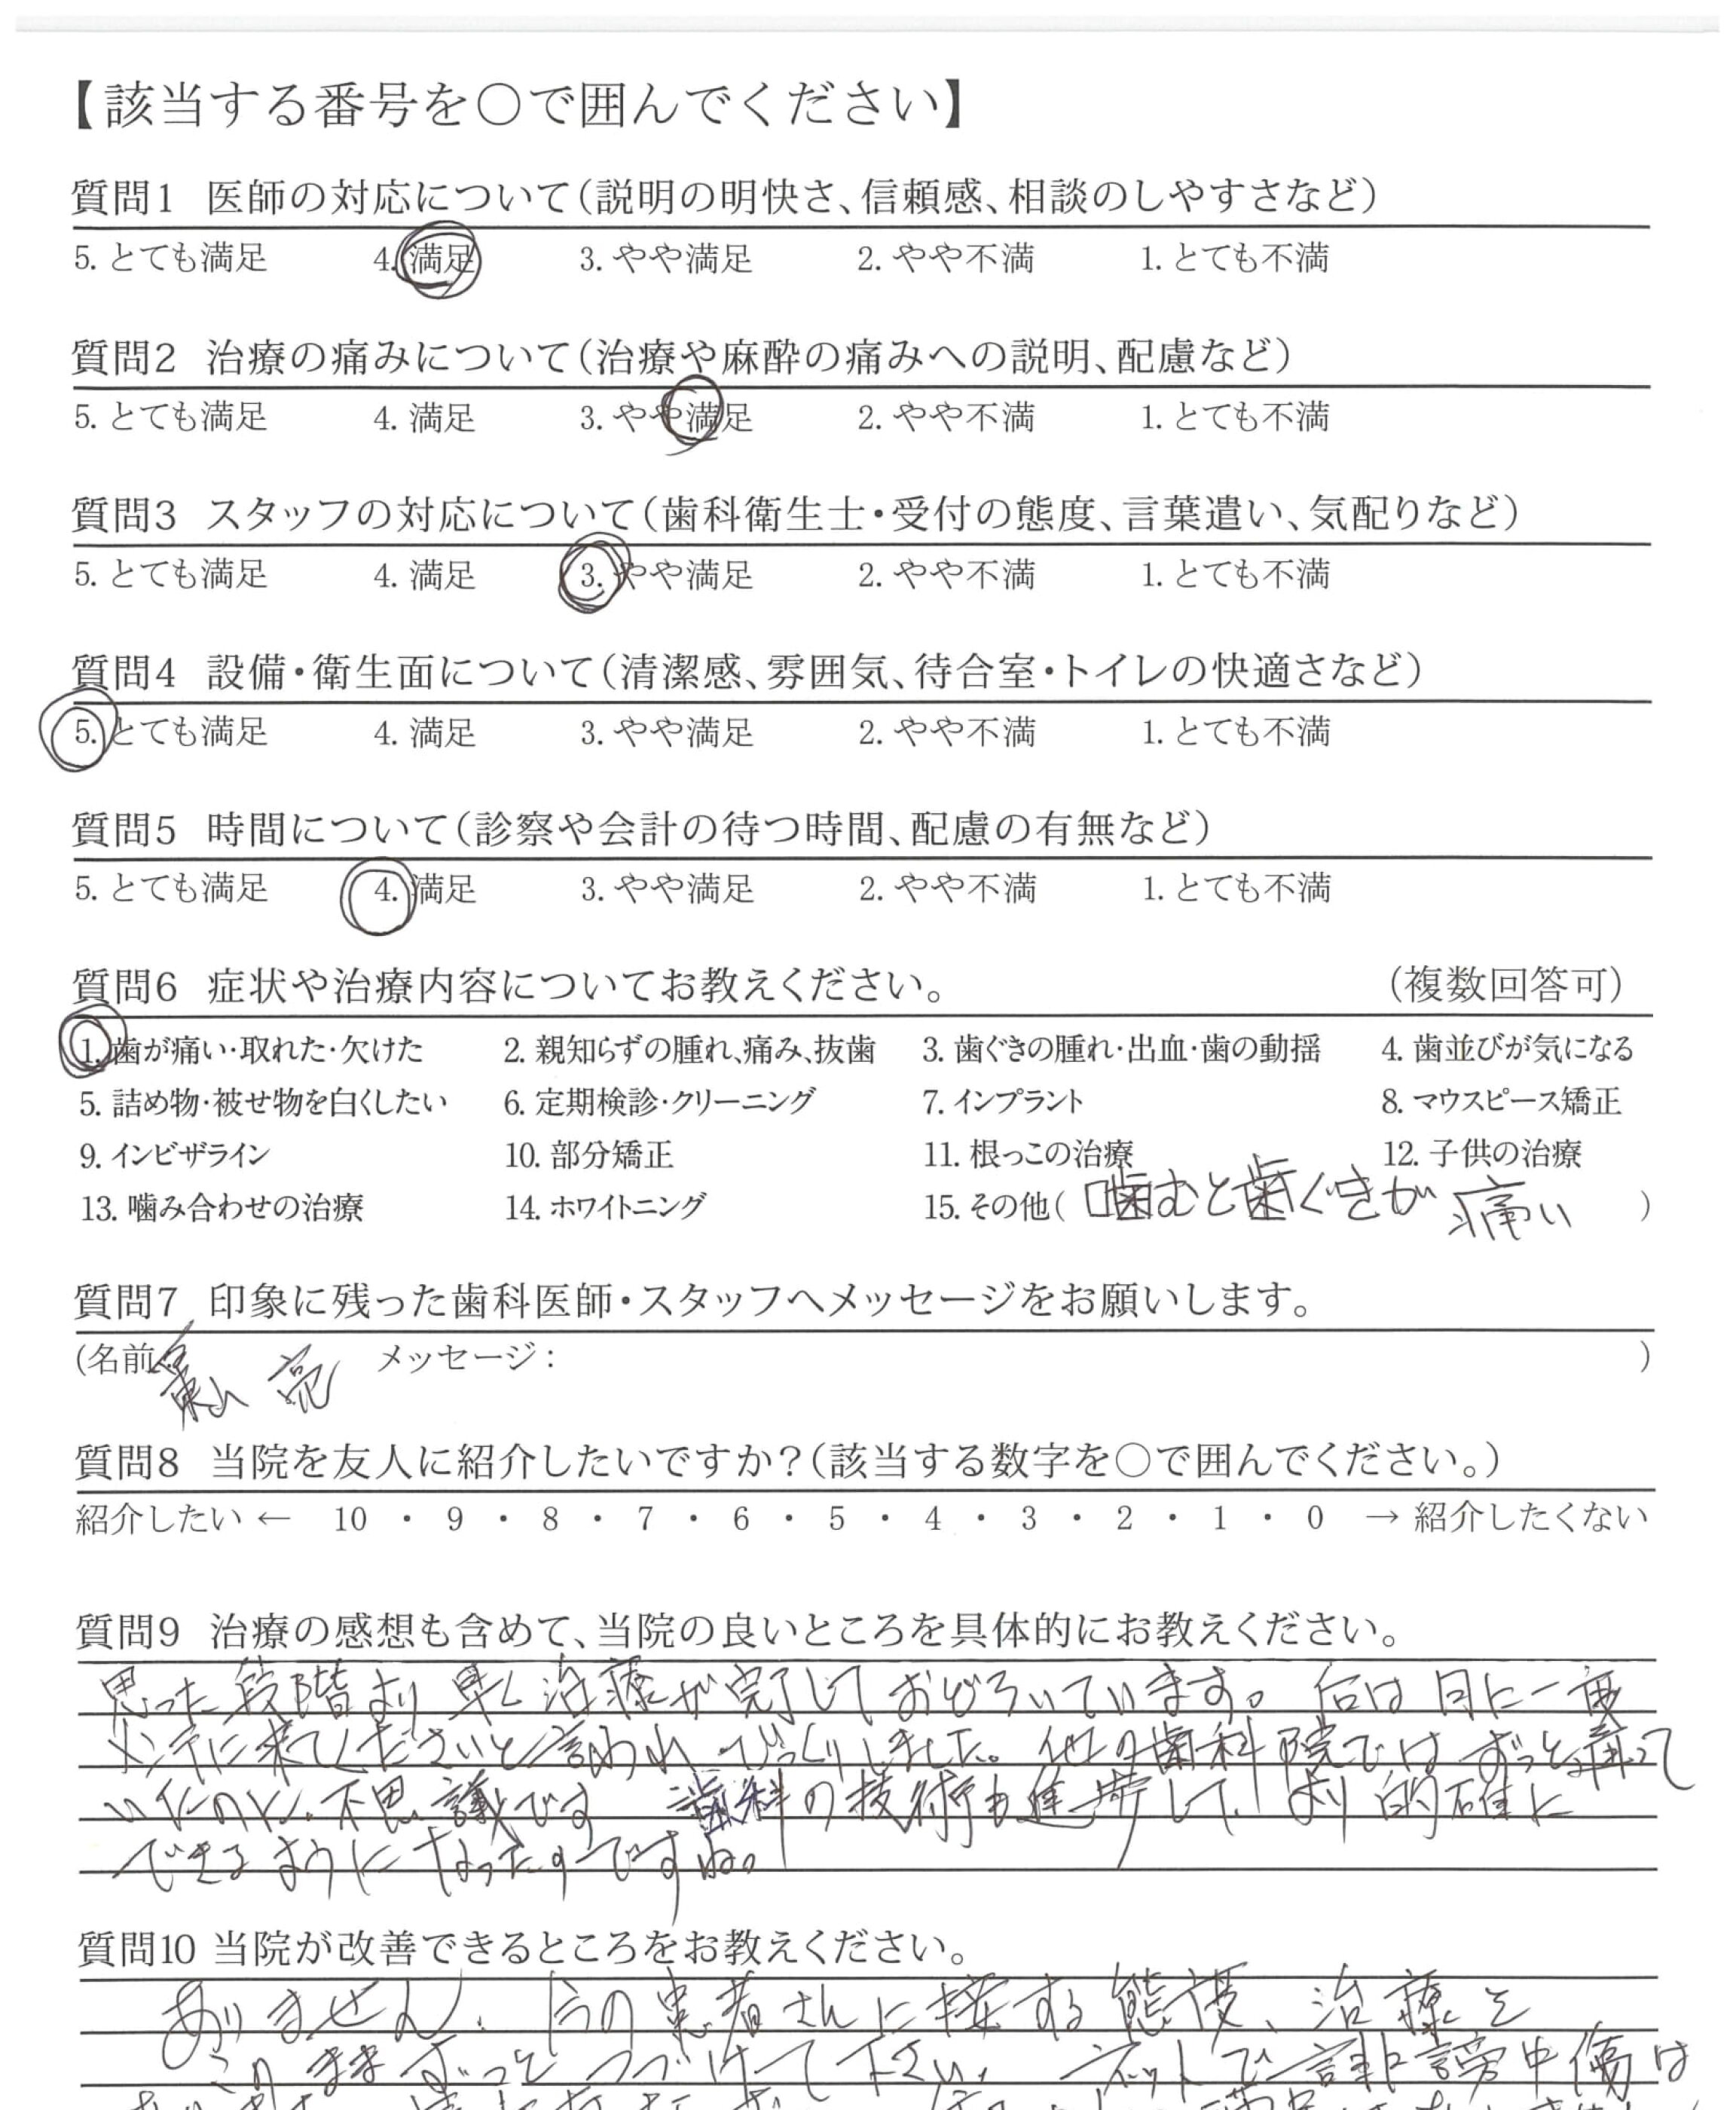 【該当する番号を○で囲んでください】
質問1 医師の対応について(説明の明快さ、信頼感、相談のしやすさなど)
5. とても満足 4. 満足 3. やや満足 2. やや不満 1. とても不満
質問2 治療の痛みについて(治療や麻酔の痛みへの説明、配慮など)
5. とても満足 4. 満足 3. やや満足 2. やや不満 1. とても不満
質問3 スタッフの対応について(歯科衛生士・受付の態度、言葉遣い、気配りなど)
5. とても満足 4. 満足 3. やや満足 2. やや不満 1. とても不満
質問4 設備・衛生面について(清潔感、雰囲気、待合室・トイレの快適さなど)
5. とても満足 4. 満足 3. やや満足 2. やや不満 1. とても不満
質問5 時間について(診察や会計の待つ時間、配慮の有無など)
5. とても満足 4. 満足 3. やや満足 2. やや不満 1. とても不満
質問6 症状や治療内容についてお教えください。 (複数回答可)
1. 歯が痛い・取れた・欠けた 2. 親知らずの腫れ、痛み、抜歯 3. 歯ぐきの腫れ・出血・歯の動揺 4. 歯並びが気になる
5. 詰め物・被せ物を白くしたい 6. 定期検診・クリーニング 7. インプラント 8. マウスピース矯正
9. インビザライン 10. 部分矯正 11. 根っこの治療 12. 子供の治療
13. 噛み合わせの治療 14. ホワイトニング 15. その他( 噛むと歯ぐきが痛い )
質問7 印象に残った歯科医師・スタッフへメッセージをお願いします。
(名前: 亮 メッセージ: )
質問8 当院を友人に紹介したいですか?(該当する数字を○で囲んでください。)
紹介したい ← 10 ・ 9 ・ 8 ・ 7 ・ 6 ・ 5 ・ 4 ・ 3 ・ 2 ・ 1 ・ 0 → 紹介したくない
質問9 治療の感想も含めて、当院の良いところを具体的にお教えください。
思った段階より早く治療が完了しておどろいています。后は月に一度
メンテに来てくださいと言われびっくりしました。他の歯科院ではずっと通って
いたのに、不思議です 歯科の技術も進歩して、より的確に
できるようになったのですね。
質問10 当院が改善できるところをお教えください。
ありません。今の患者さんに接する態度、治療を
このままずっとつづけて下さい。ネットで誹謗中傷は